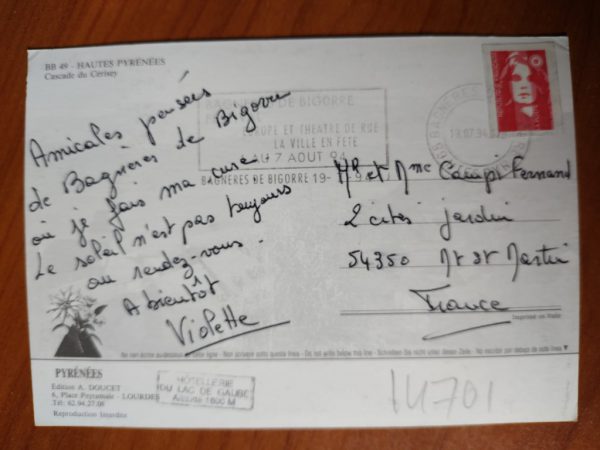 BB 49 - HAUTES PYRÉNÉES
Cascade du Cérisey
Amicales pensées
de Bagnères de Bigorre
où je fais ma cure.
Le soleil n'est pas toujours
au rendez-vous.
A bientôt
Violette
BAGNERES DE BIGORRE
EUROPE ET THEATRE DE RUE
LA VILLE EN FETE
AU 7 AOUT 94
BAGNERES DE BIGORRE 19-
65 BAGNERES
19.07.94
Mr et Mme Campi Fernand
2 cités jardin
54350 Mt St Martin
France
Imprimé en Italie
Ne rien écrire au-dessous de cette ligne - Non scrivere sotto questa linea - Do not write below this line - Schreiben Sie nicht unter dieser Zeile - No escribir por debajo de esta línea
PYRÉNÉES
Edition A. DOUCET
6, Place Peyramale - LOURDES
Tél: 62.94.27.08
Reproduction Interdite
HÔTELLERIE
DU LAC DE GAUBE
Altitude 1800 M
14701